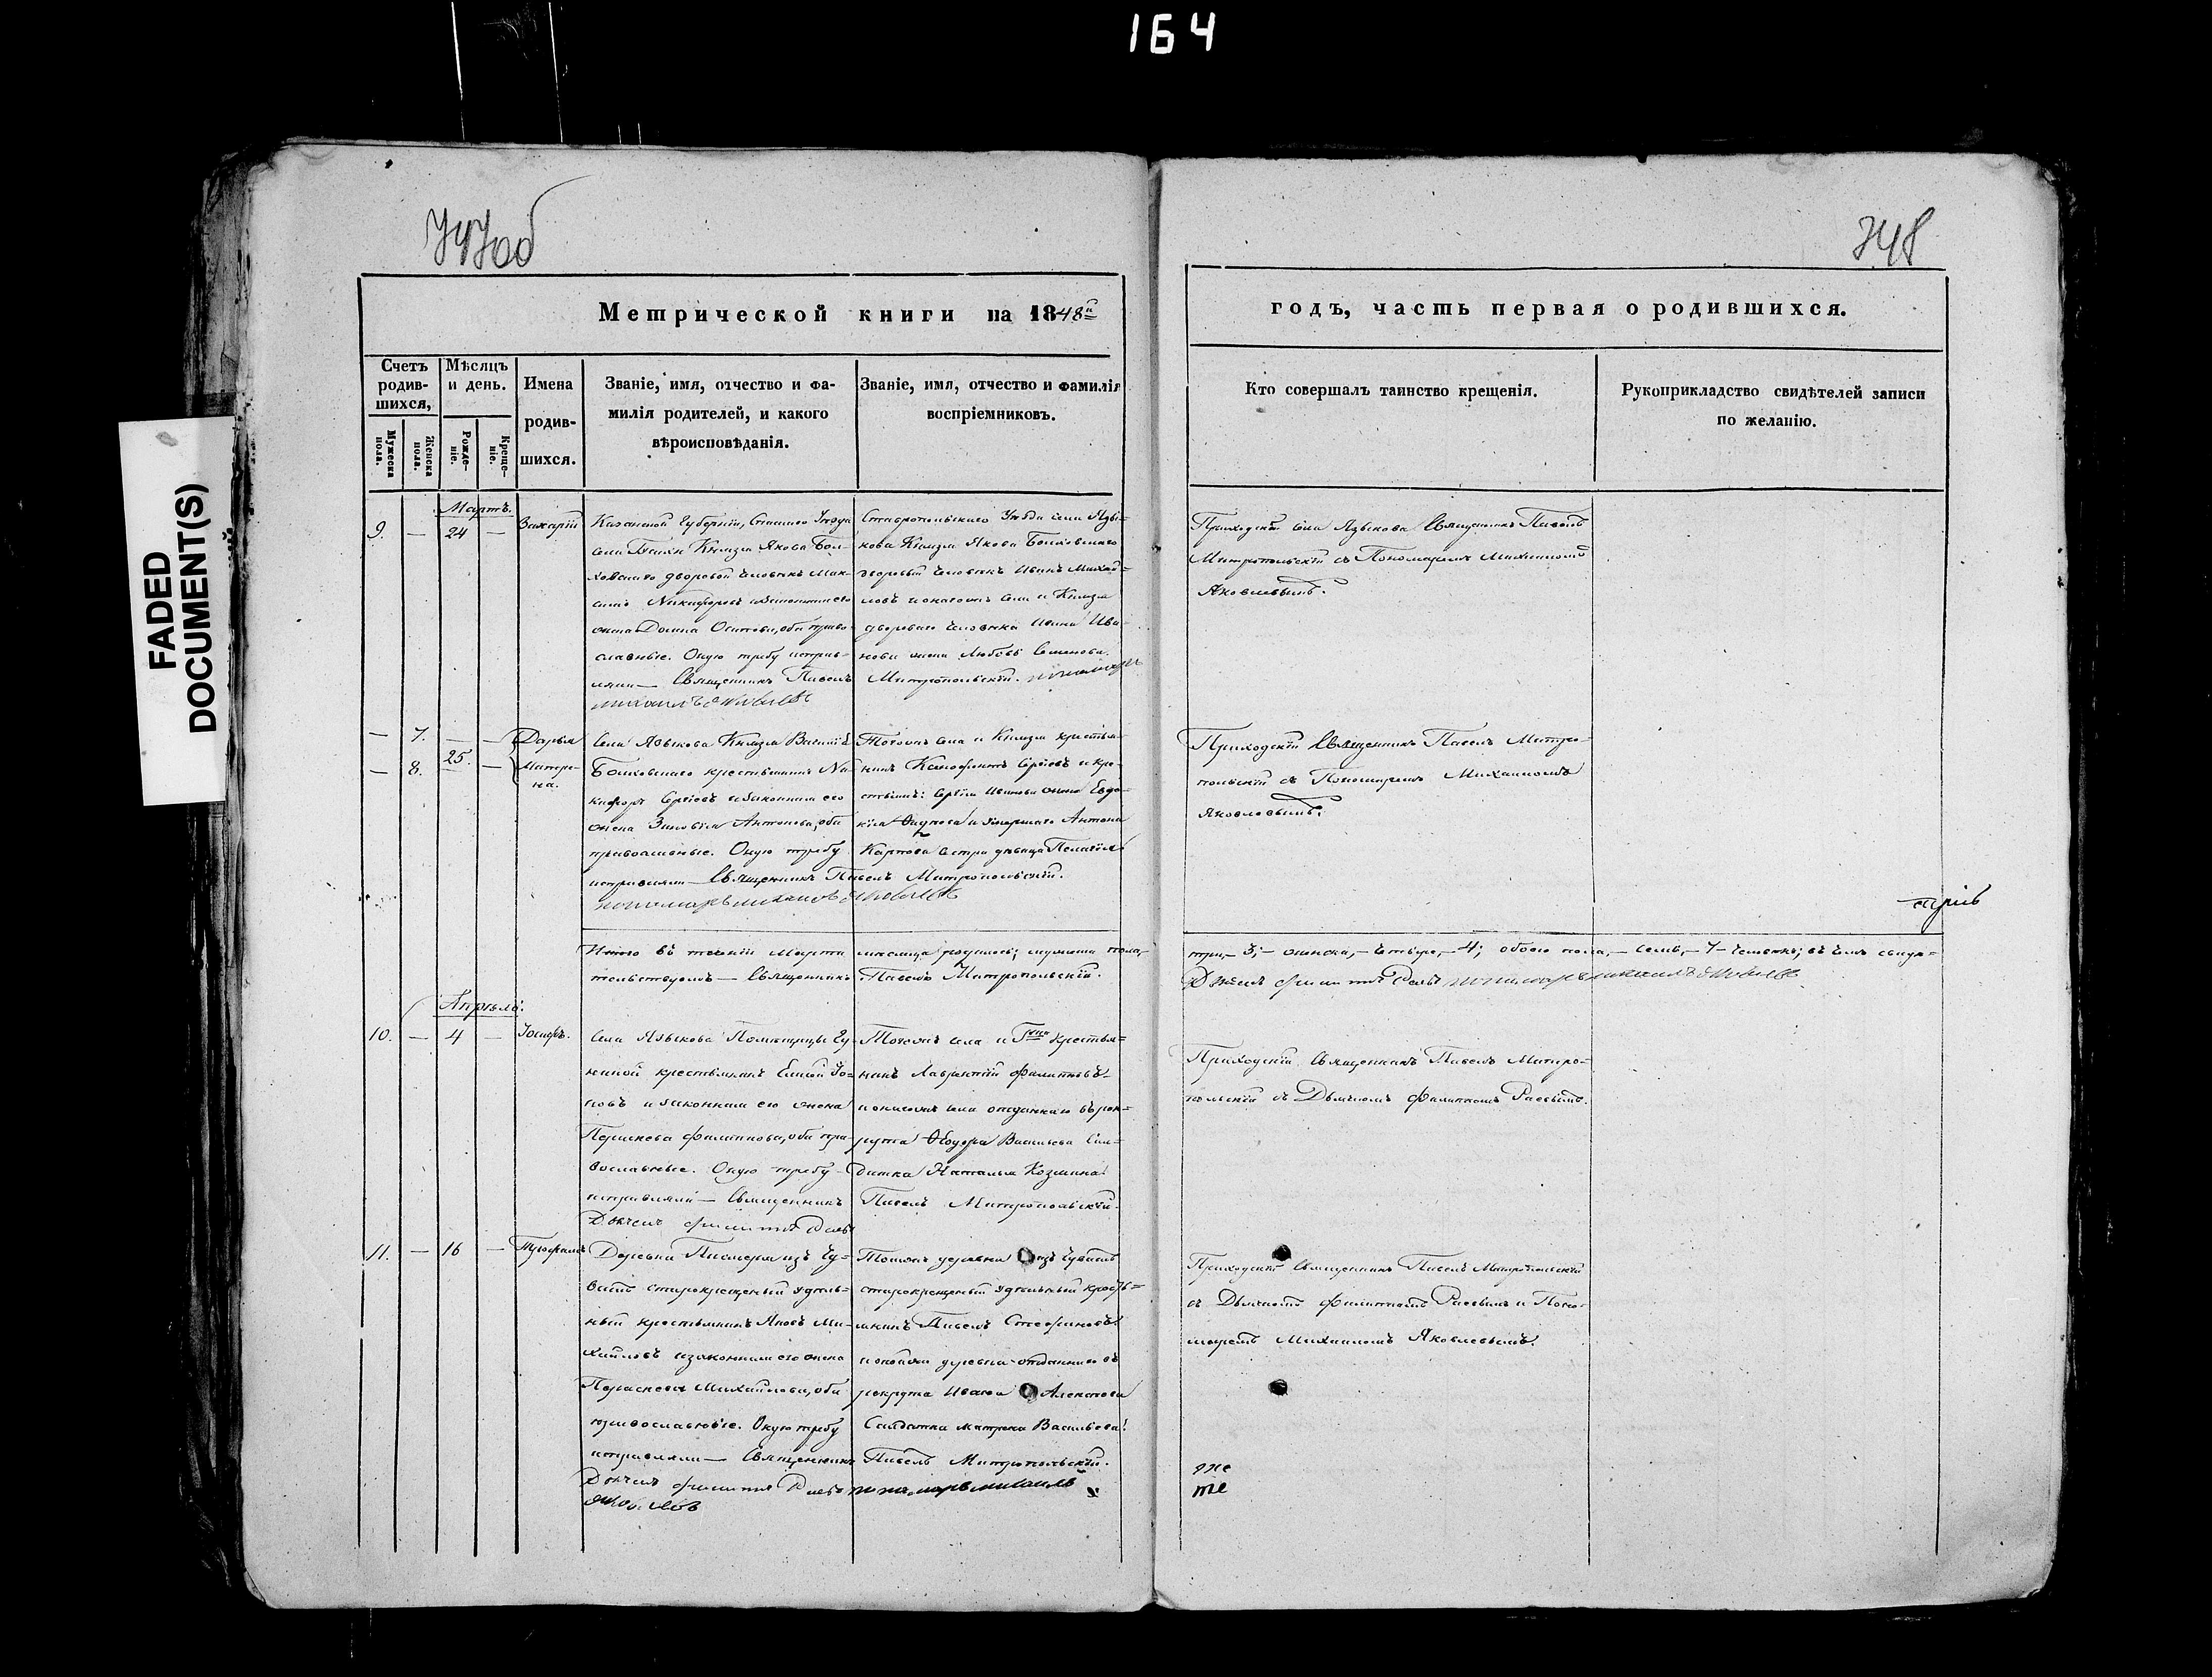 164
FADED
DOCUMENT(S)
747об
748
Метрической книги на 1848й
годъ, часть первая о родившихся.
Счетъ родив-шихся,
Мужеска пола.
Женска пола.
Мѣсяцъ и день.
Рожде-ніе.
Креще-ніе.
Имена родив-шихся.
Званіе, имя, отчество и фа-
милія родителей, и какого
вѣроисповѣданія.
Званіе, имя, отчество и фамилія
воспріемниковъ.
Кто совершалъ таинство крещенія.
Рукоприкладство свидѣтелей записи
по желанію.
Мартъ.
9. — 24 — Захарій
Казанской Губерніи, Спасскаго Уѣзда
села Князя Якова Бол-
ховскаго дворовой человѣкъ Мак-
симъ Никифоровъ и законная его
жена Домна Осипова, оба право-
славные. Оную требу исправ-
ляли — Священникъ Павелъ
Михаилъ Яковлевъ
Ставропольскаго Уѣзда села Язы-
кова Князя Якова Болховскаго
дворовый человѣкъ Иванъ Михай-
ловъ и онагожъ села и Князя
двороваго человѣка Ивана Ива-
нова жена Любовь Семенова.
Митропольскій. пономарь
Приходскій села Языкова Священникъ Павелъ
Митропольскій съ Пономаремъ Михаиломъ
Яковлевымъ.
— 7. — — Дарья
— 8. 25. — Матре-
на.
Села Языкова Князя Василія
Болховскаго крестьянинъ Ни-
кифоръ Сергѣевъ и законная его
жена Зиновія Антонова, оба
православные. Оную требу
исправляли — Священникъ Павелъ Митропольскій.
пономарь михаилъ Яковлевъ
Тогожъ села и Князя крестья-
нинъ Ксенофонтъ Сергѣевъ и кре-
стьянина Сергѣя Иванова жена Евдо-
кія и умершаго Антона
Карпова сестра дѣвица Пелагія
Приходскій Священникъ Павелъ Митро-
польскій съ Пономаремъ Михаиломъ
Яковлевымъ.
Итого въ теченіи Марта мѣсяца родилось; мужеска пола,
три,- 3; — женска, — четыре, — 4; обоего пола, — семь, — 7 — человѣкъ; въ чемъ свидѣ-
тельствуемъ — Священникъ Павелъ Митропольскій.
пономарь михаилъ Яковлевъ
Апрѣль.
10. — 4 — Іосифъ.
Села Языкова Помѣщицы
крестьянинъ
и законная его жена
Параскева Филиппова, оба пра-
вославные. Оную требу
исправляли — Священникъ
Тогожъ села и Гжи крестья-
нинъ Лаврентій Филипповъ
и онагожъ села отданнаго въ рек-
рута Ѳедора Васильева Сол-
датка Наталья Козмина
Павелъ Митропольскій.
Приходскій Священникъ Павелъ Митро-
польскій съ Дьячкомъ Филиппомъ Раевымъ.
11. — 16 — Трофимъ
Деревни изъ Чу-
вашъ старокрещеный Удѣль-
ный крестьянинъ Яковъ Ми-
хайловъ и законная его жена
Параскева Михайлова, оба
православные. Оную требу
исправляли — Священникъ
Яковлевъ
Тойже деревни изъ Чувашъ
старокрещеный Удѣльный кресть-
янинъ Павелъ Стефановъ
и онойже деревни отданнаго въ
рекрута Ивана Алексѣева
Салдатка Матрена Васильева.
Павелъ Митропольскій.
пономарь михаилъ
Приходскій Священникъ Павелъ Митропольскій
съ Дьячкомъ Филиппомъ Раевымъ и Поно-
маремъ Михаиломъ Яковлевымъ.